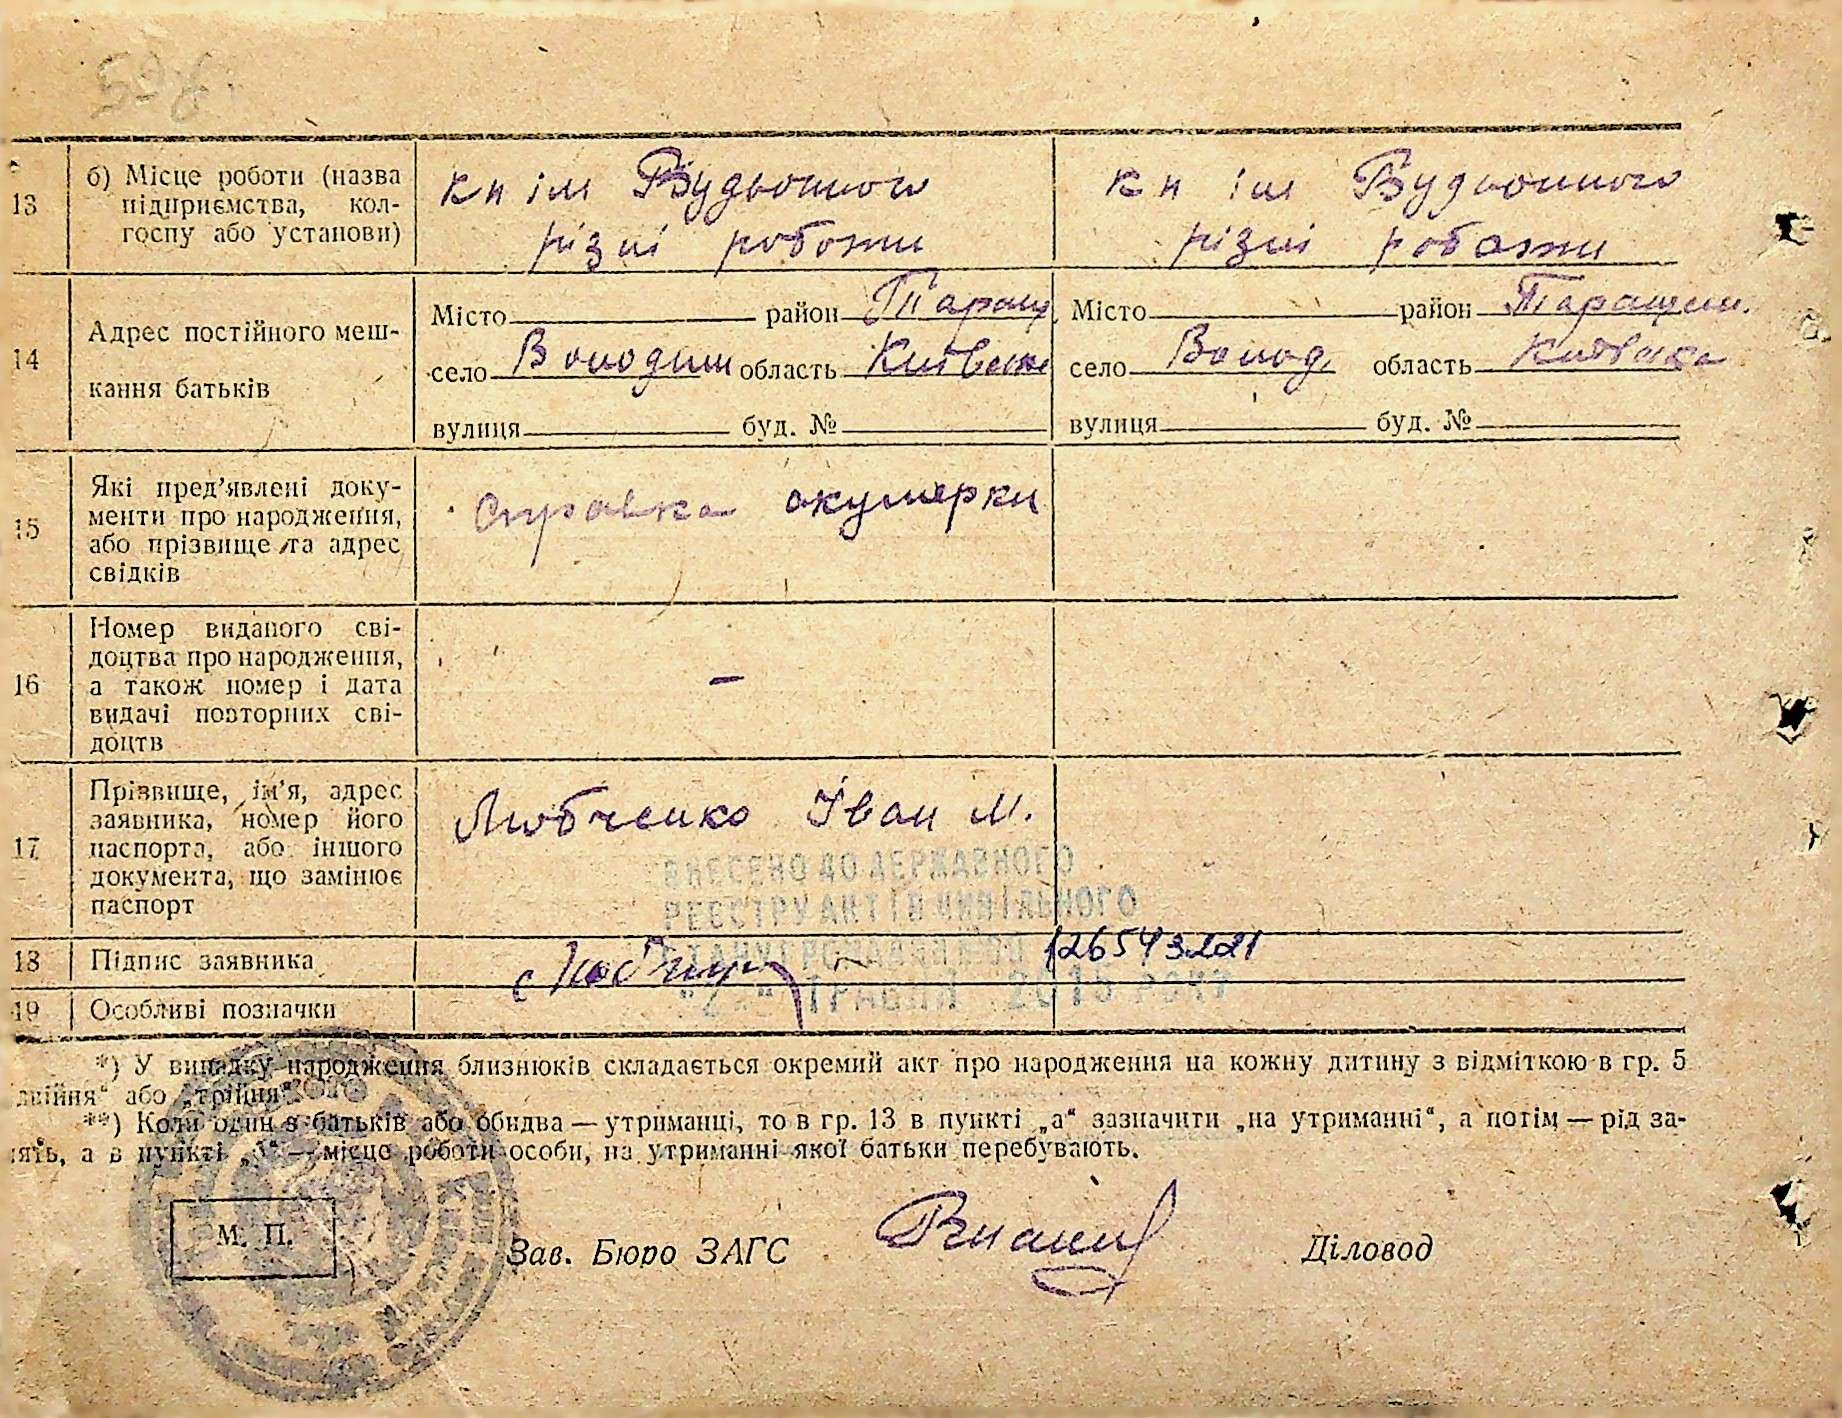 13 б) Місце роботи (назва підприємства, колгоспу або установи)
кн ім Будьонного
різні роботи
кн ім Будьонного
різні роботи
14 Адрес постійного мешкання батьків
Місто район Таращ.
село Володим область Київська
вулиця буд. №
Місто район Таращан.
село Волод. область Київська
вулиця буд. №
15 Які пред’явлені документи про народження, або прізвище та адрес свідків
Справка акушерки
16 Номер виданого свідоцтва про народження, а також номер і дата видачі повторних свідоцтв
–
17 Прізвище, ім’я, адрес заявника, номер його паспорта, або іншого документа, що замінює паспорт
Любченко Іван М.
ВНЕСЕНО ДО ДЕРЖАВНОГО
РЕЄСТРУ АКТІВ ЦИВІЛЬНОГО
СТАНУ ГРОМАДЯН №00 126543221
ТРАВНЯ 2015 РОКУ
18 Підпис заявника
19 Особливі позначки
*) У випадку народження близнюків складається окремий акт про народження на кожну дитину з відміткою в гр. 5
„двійня“ або „трійня“.
**) Коли один з батьків або обидва — утриманці, то в гр. 13 в пункті „а“ зазначити „на утриманні“, а потім — рід за-
нять, а в пункті „б“ — місце роботи особи, на утриманні якої батьки перебувають.
М. П.
Зав. Бюро ЗАГС
Діловод